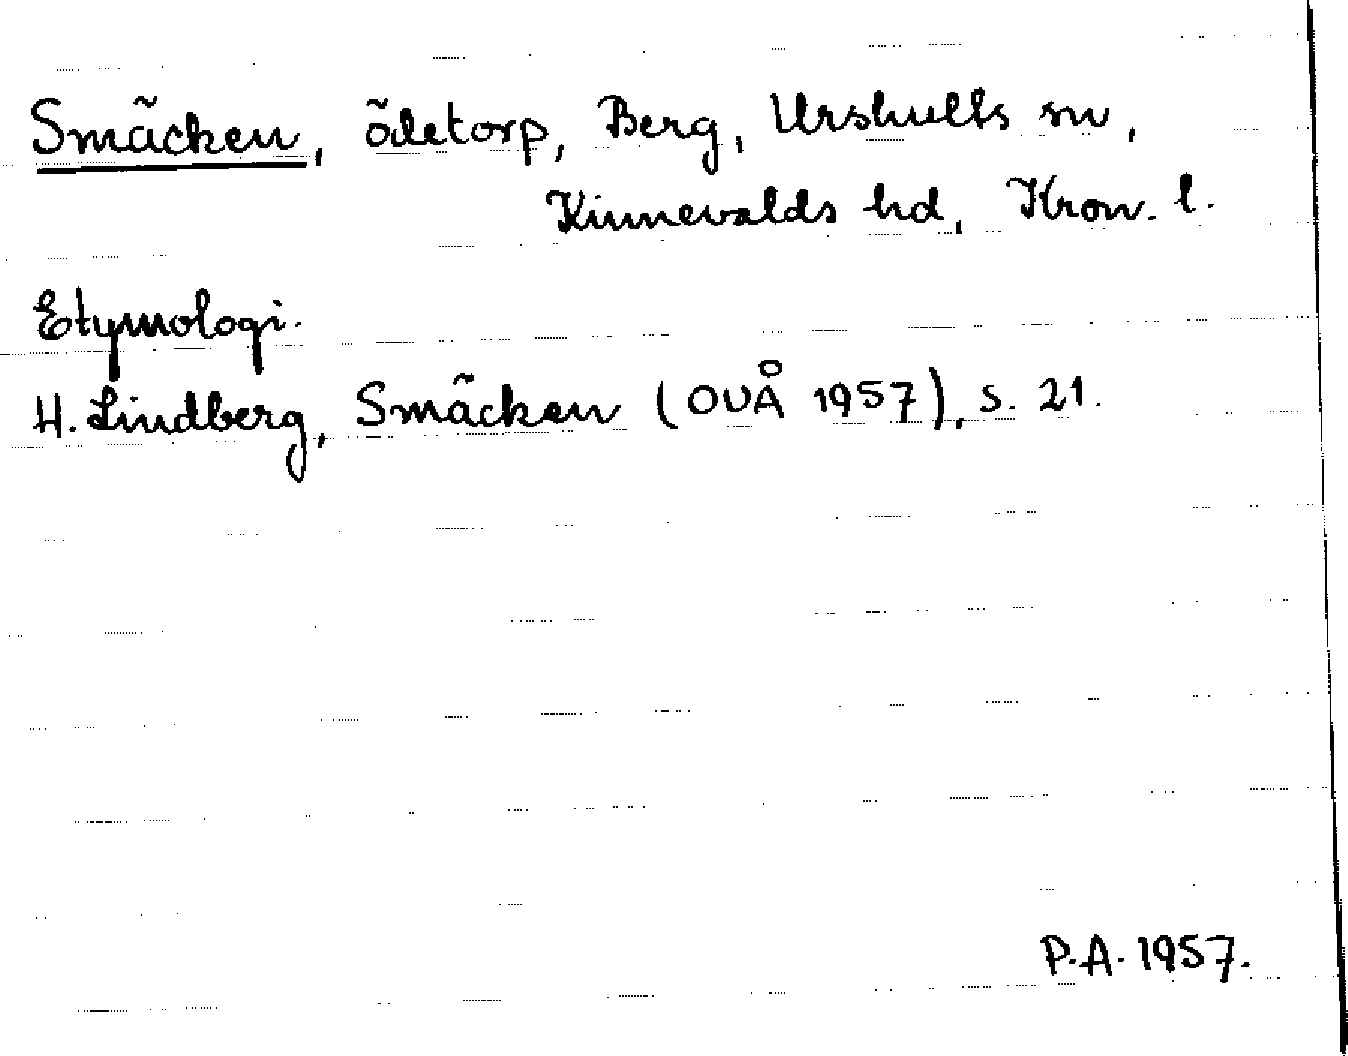 Smäcken, ödetorp, Berg, Urshults sn,
Kinnevalds hd, Kron. l.
Etymologi.
H. Lindberg, Smäcken (OUÅ 1957), s. 21.
P.A. 1957.